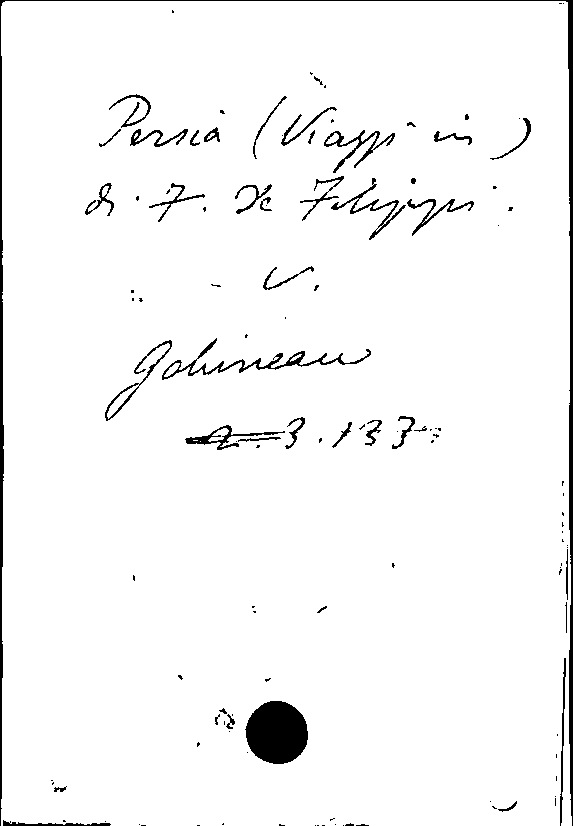 Persia (Viaggi in)
di F. De Filippi.
V.
Gobineau
3.137